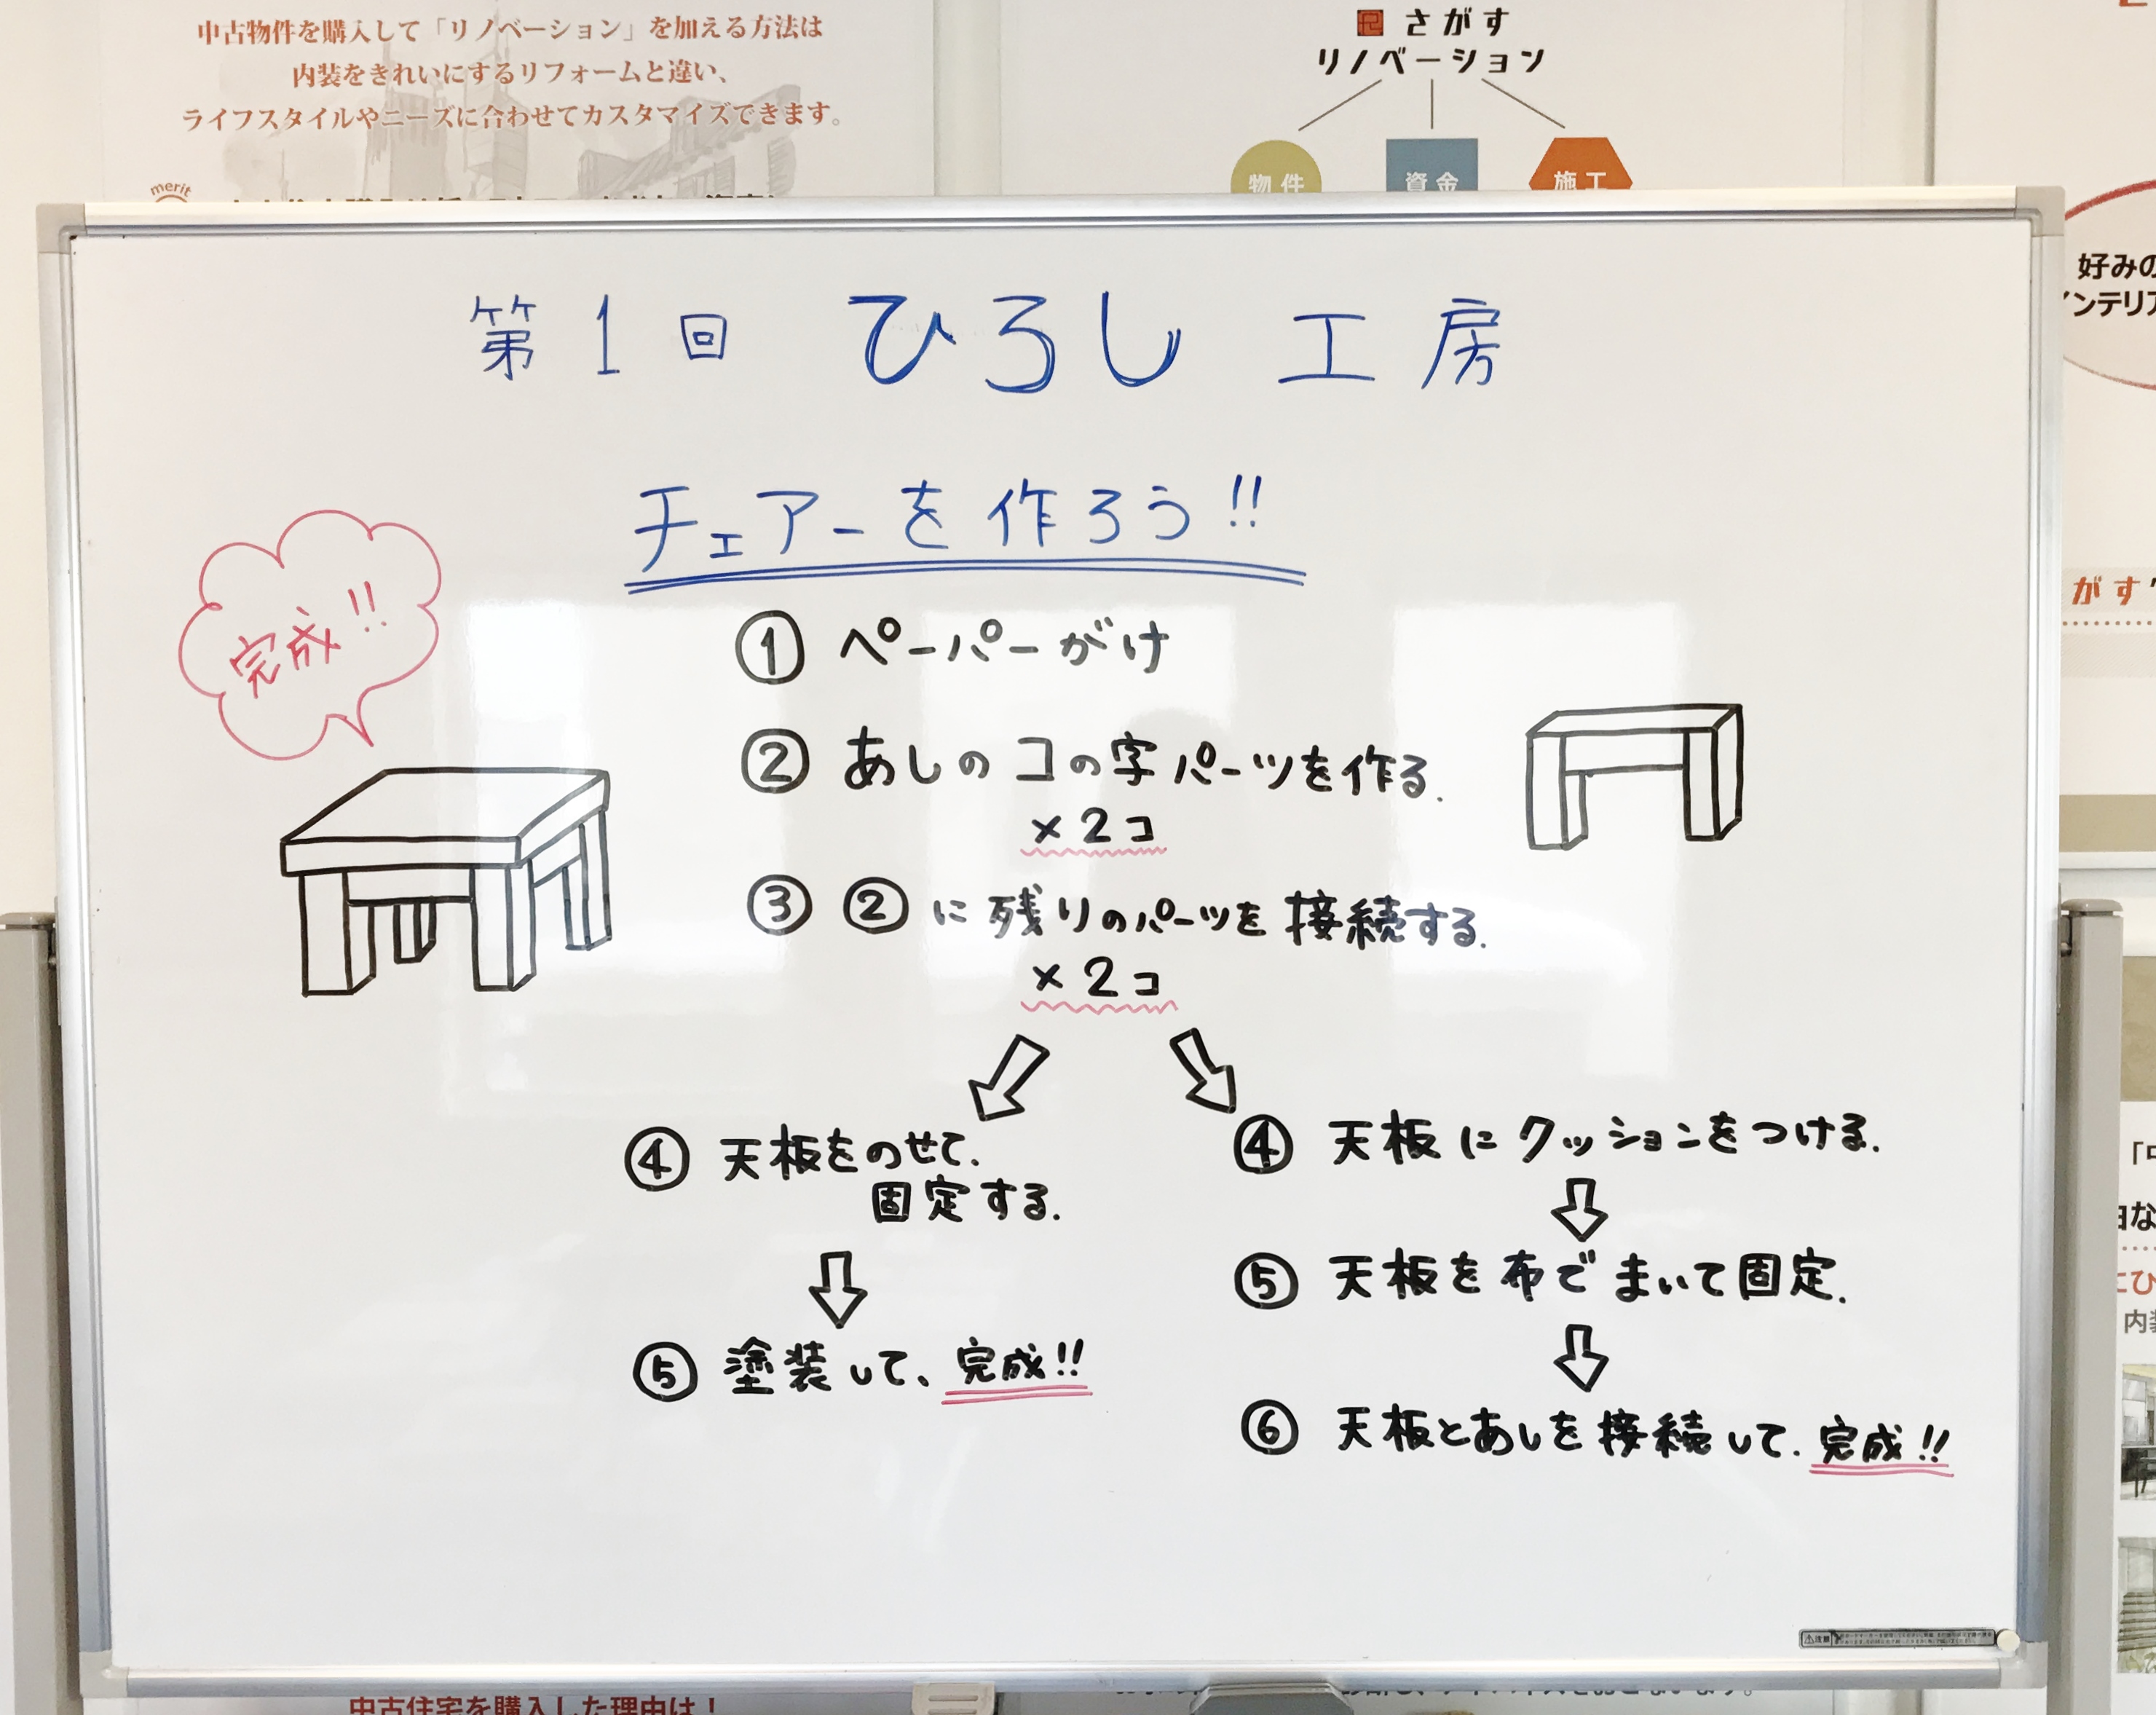 中古物件を購入して「リノベーション」を加える方法は
内装をきれいにするリフォームと違い、
ライフスタイルやニーズに合わせてカスタマイズできます。
merit
さがす
リノベーション
物件 資金 施工
好みの
インテリア
第1回 ひろし 工房
チェアーを作ろう!!
完成!!
① ペーパーがけ
② あしのコの字パーツを作る.
×2コ
③ ②に残りのパーツを接続する.
×2コ
④ 天板をのせて.
固定する.
⑤ 塗装して、完成!!
④ 天板にクッションをつける.
⑤ 天板を布でまいて固定.
⑥ 天板とあしを接続して.完成!!
がす
内装
注意
中古住宅を購入した理由は!